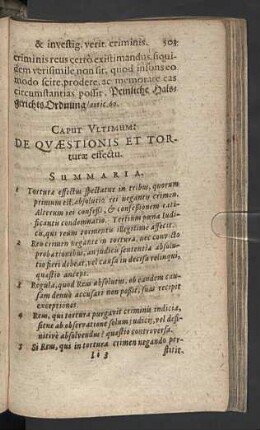 & investig. verit. criminis. 503
criminis reus certò existimandus siquidem
verisimile non sit, quod insons eo
modo scire, prodere, ac memorare eas
circumstantias possit. Peinliche Halsgerichts
Ordnung / artic. 60.
CAPUT VLTIMUM:
DE QVÆSTIONIS ET TORturæ
effectu.
SUMMARIA.
1 Torturæ effectus spectatur in tribus, quorum
primum est, absolutio rei negantis crimen.
Alterum rei confessi, & confessionem ratificantis
condemnatio. Tertium pœna Iudicis,
qui reum tormentis illegitimè affecit.
2 Reo crimen negante in tortura, nec convicto
probationibus, an judicis sententia absolutio
fieri debeat, vel causa in decisa relinqui,
quæstio anceps.
3 Regula, quod Reus absolutus, ob eandem causam
denuò accusari non possit, suas recipit
exceptiones.
4 Reus, qui tortura purgavit criminis indicia,
sitne ab observatione solùm judicis, vel definitivè
absolvendus? quæstio controversa.
5 Si Reus, qui in tortura crimen negando perstitit.
Ii 3